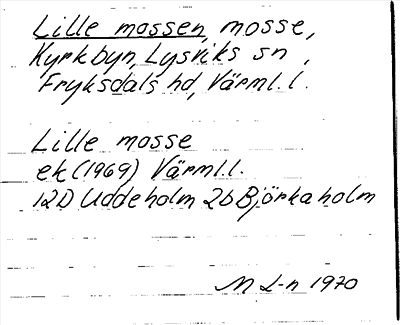 Lille mossen, mosse,
Kyrkbyn, Lysviks sn,
Fryksdals hd, Värml. l.
Lille mosse
ek (1969) Värml.l.
12D Uddeholm 2b Björkaholm
M L-n 1970